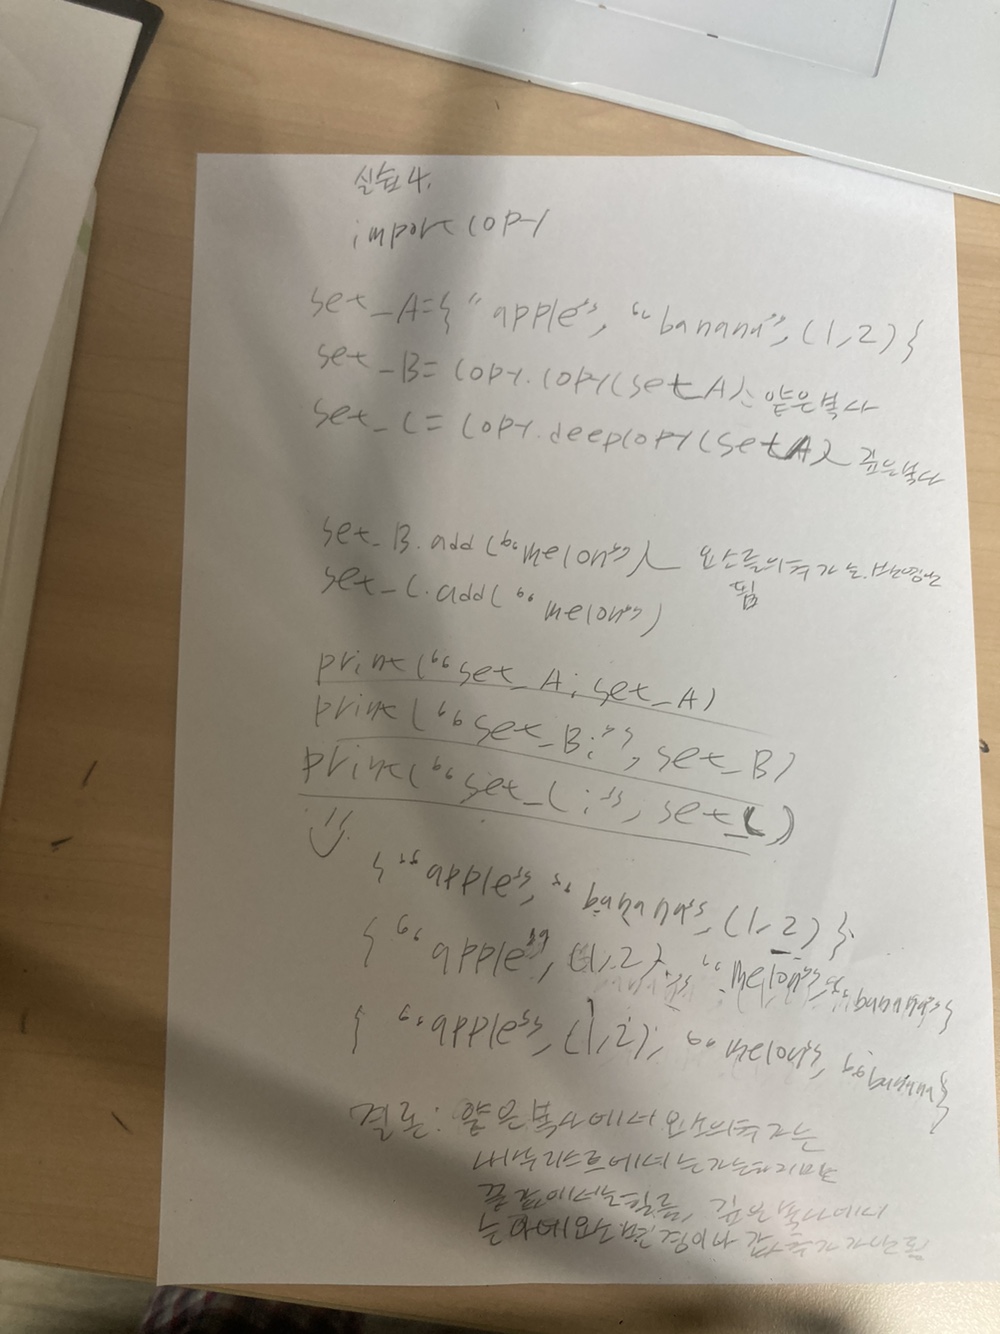 실습4.
import copy
set_A={"apple", "banana", (1,2)}
set_B= copy.copy(setA) 얕은복사
set_C= copy.deepcopy(setA) 깊은복사
set_B.add("melon") 요소들의추가는
set_C.add("melon")
print("set_A: set_A)
print("set_B:", set_B)
print("set_C:", set_C)
{"apple", "banana", (1,2)}
{"apple", (1,2), "melon", "banana"}
{"apple", (1,2), "melon", "banana}
결론: 얕은복사에서 요소의추가는
내부리스트에서는가능하지만
깊은복사에서
는 요소변경이나 값추가가